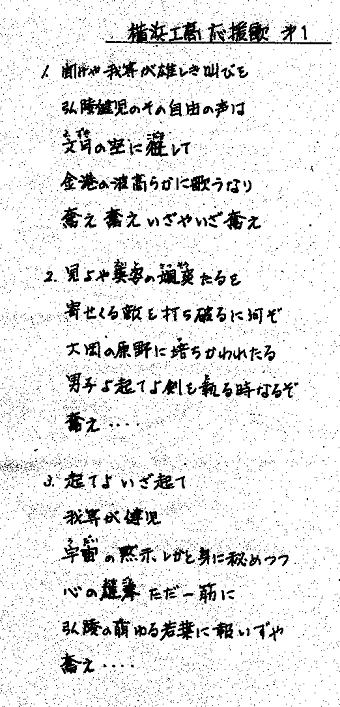 横浜工高応援歌 才1
1. 聞けや我等が雄しき叫びを
弘陵健児のその自由の声は
文月の空に して
金港の波高らかに歌うなり
奮え 奮え いざやいざ奮え
2. 見よや の たるを
寄せくる敵を打ち破るに何ぞ
大岡の原野に培ちかわれたる
男子よ起てよ剣を執る時なるぞ
奮え‥‥
3. 起てよいざ起て
我等が健児
宇宙の黙示しかと身に秘めつつ
心の ただ一筋に
弘陵の萌ゆる若葉に報いずや
奮え‥‥